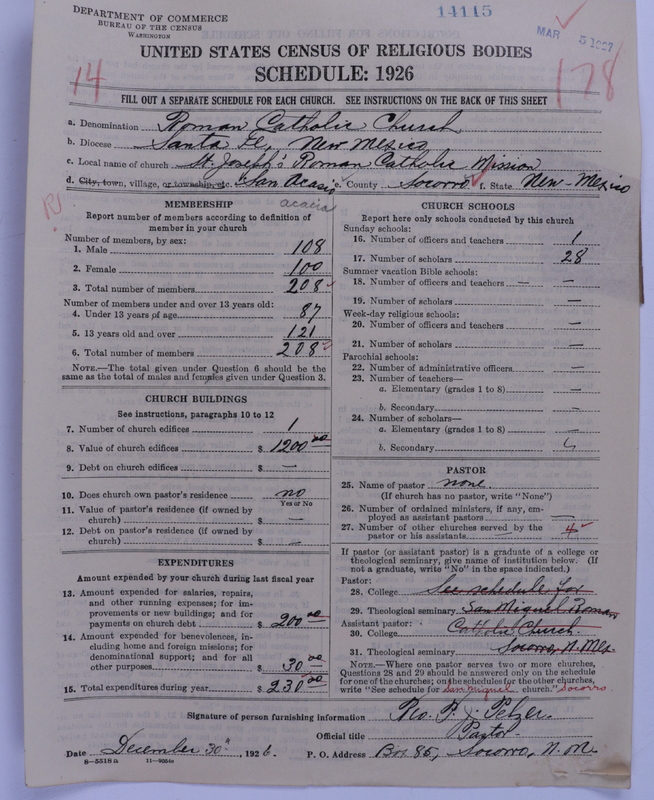 DEPARTMENT OF COMMERCE
BUREAU OF THE CENSUS
WASHINGTON
14115
MAR 5 1927
UNITED STATES CENSUS OF RELIGIOUS BODIES
SCHEDULE: 1926
14
178
FILL OUT A SEPARATE SCHEDULE FOR EACH CHURCH. SEE INSTRUCTIONS ON THE BACK OF THIS SHEET
a. Denomination Roman Catholic Church
b. Diocese Santa Fe, New Mexico
c. Local name of church St. Joseph's Roman Catholic Mission
d. City, town, village, or township, etc. San Acasia e. County Socorro f. State New-Mexico
acacia
MEMBERSHIP
Report number of members according to definition of
member in your church
Number of members, by sex:
1. Male 108
2. Female 100
3. Total number of members 208
Number of members under and over 13 years old:
4. Under 13 years of age 87
5. 13 years old and over 121
6. Total number of members 208
NOTE.—The total given under Question 6 should be the
same as the total of males and females given under Question 3.
CHURCH BUILDINGS
See instructions, paragraphs 10 to 12
7. Number of church edifices 1
8. Value of church edifices $ 1200 00
9. Debt on church edifices $ —
10. Does church own pastor's residence no
Yes or No
11. Value of pastor's residence (if owned by
church) $ —
12. Debt on pastor's residence (if owned by
church) $ —
EXPENDITURES
Amount expended by your church during last fiscal year
13. Amount expended for salaries, repairs,
and other running expenses; for im-
provements or new buildings; and for
payments on church debt $ 200 00
14. Amount expended for benevolences, in-
cluding home and foreign missions; for
denominational support; and for all
other purposes $ 30 00
15. Total expenditures during year $ 230 00
CHURCH SCHOOLS
Report here only schools conducted by this church
Sunday schools:
16. Number of officers and teachers 1
17. Number of scholars 28
Summer vacation Bible schools:
18. Number of officers and teachers —
19. Number of scholars —
Week-day religious schools:
20. Number of officers and teachers —
21. Number of scholars —
Parochial schools:
22. Number of administrative officers —
23. Number of teachers—
a. Elementary (grades 1 to 8) —
b. Secondary —
24. Number of scholars—
a. Elementary (grades 1 to 8) —
b. Secondary
PASTOR
25. Name of pastor none
(If church has no pastor, write "None")
26. Number of ordained ministers, if any, em-
ployed as assistant pastors —
27. Number of other churches served by the
pastor or his assistants 4
If pastor (or assistant pastor) is a graduate of a college or
theological seminary, give name of institution below. (If
not a graduate, write "No" in the space indicated.)
Pastor:
28. College See schedule for
29. Theological seminary San Miguel Roman
Assistant pastor:
30. College Catholic Church.
31. Theological seminary Socorro, N. Mex.
NOTE.—Where one pastor serves two or more churches,
Questions 28 and 29 should be answered only on the schedule
for one of the churches; on the schedules for the other churches,
write "See schedule for San Miguel church." Socorro.
Signature of person furnishing information Rev. P. J. Pelzer.
Official title Pastor.
Date December 30th, 1926. P. O. Address Box 85, Socorro, N. M.
8-5518 a